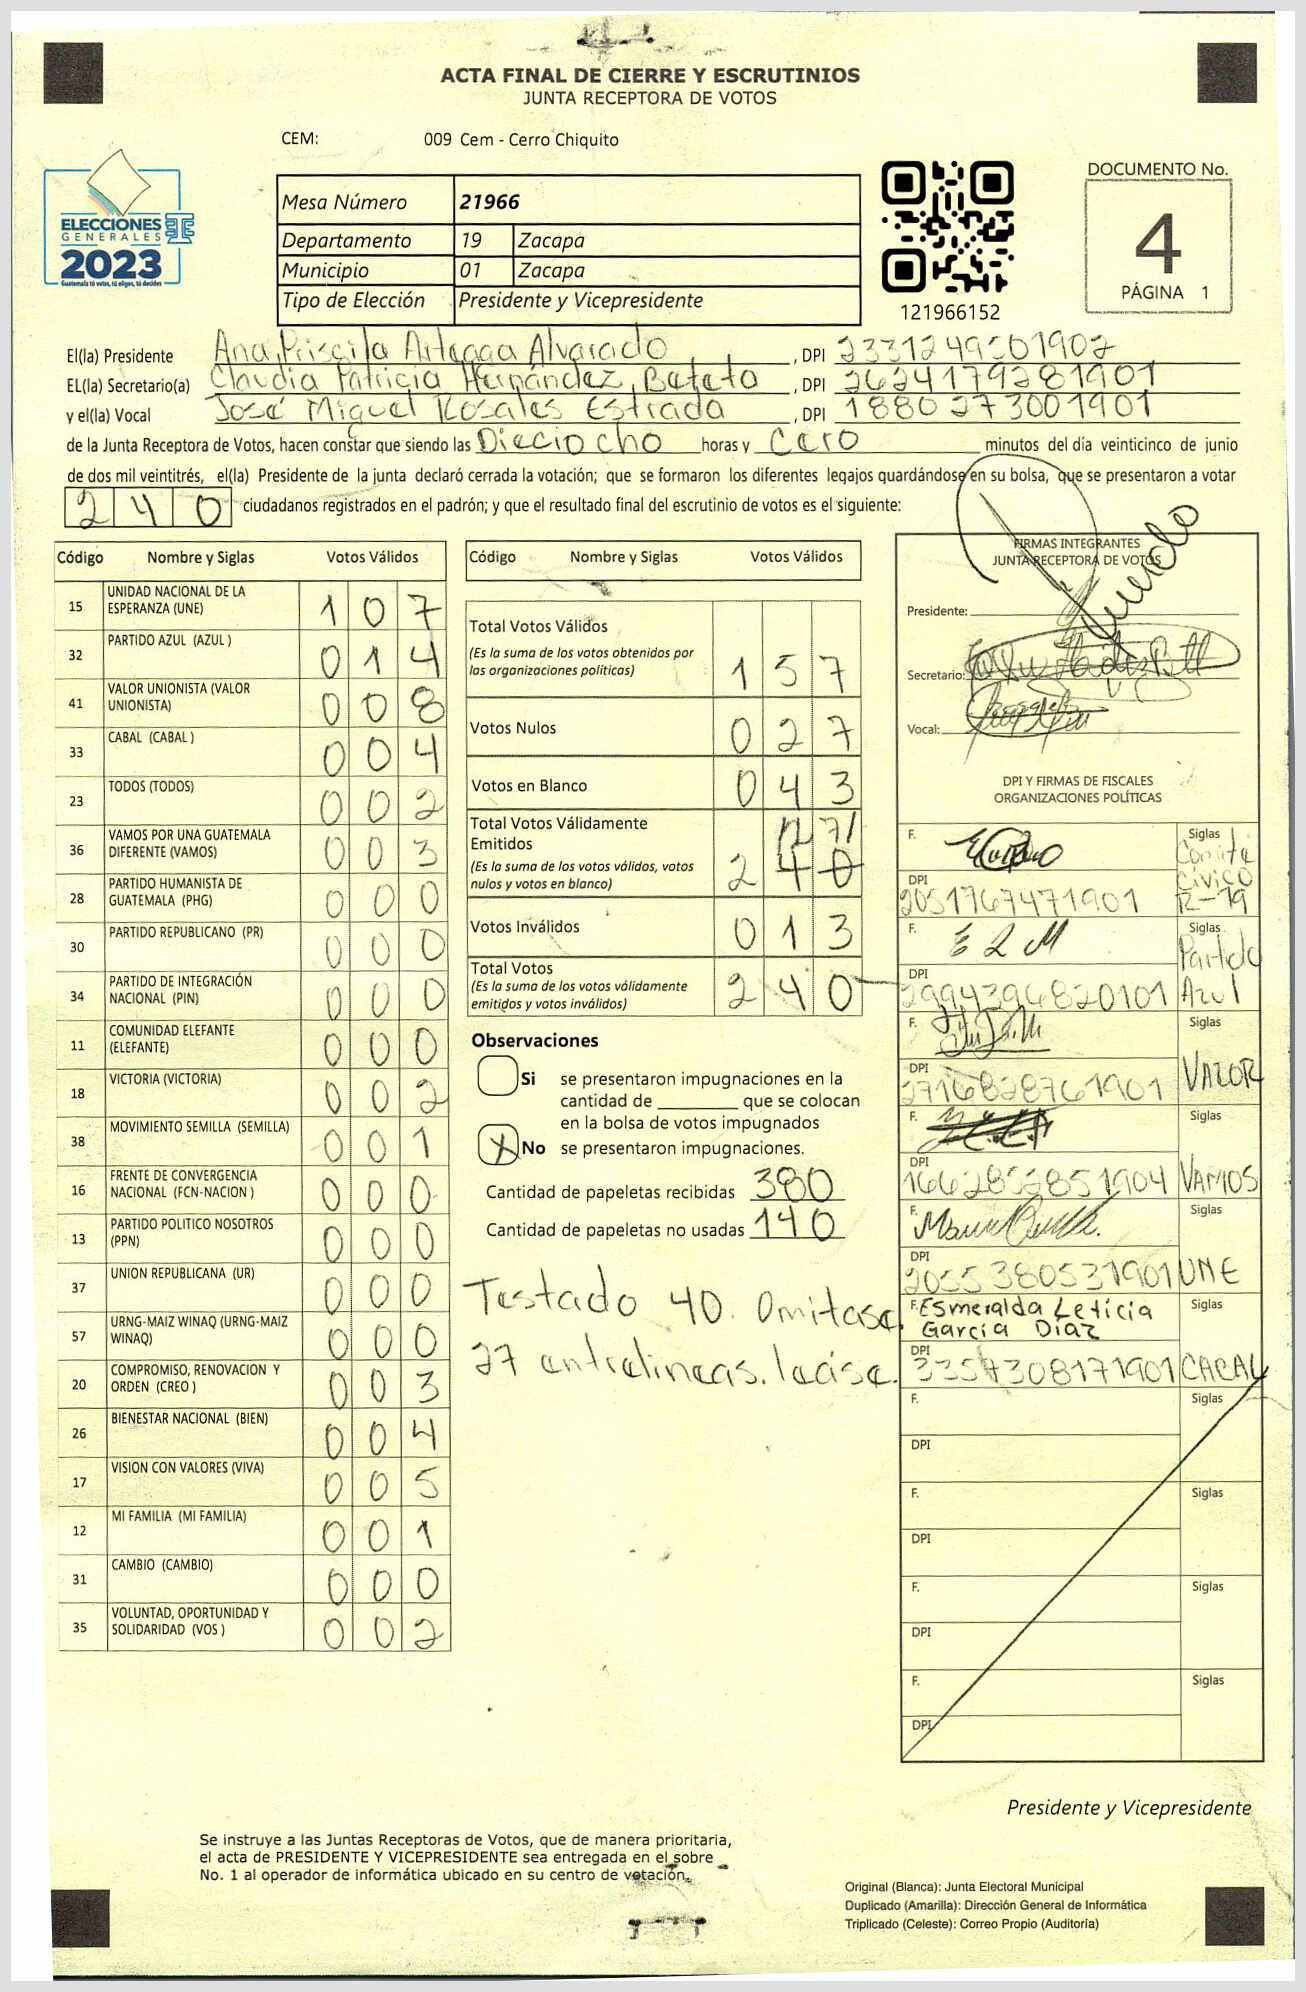 ACTA FINAL DE CIERRE Y ESCRUTINIOS
JUNTA RECEPTORA DE VOTOS
CEM: 009 Cem - Cerro Chiquito
ELECCIONES
GENERALES
2023
Guatemala tú votas, tú eliges, tú decides
Mesa Número 21966
Departamento 19 Zacapa
Municipio 01 Zacapa
Tipo de Elección Presidente y Vicepresidente
121966152
DOCUMENTO No.
4
PÁGINA 1
El(la) Presidente Ana Priscila Arteaga Alvarado, DPI 2331249501902
EL(la) Secretario(a) Claudia Patricia Hernández Beteta, DPI 2624179281901
y el(la) Vocal José Miguel Rosales Estrada, DPI 1880273001901
de la Junta Receptora de Votos, hacen constar que siendo las Dieciocho horas y Cero minutos del día veinticinco de junio
de dos mil veintitrés, el(la) Presidente de la junta declaró cerrada la votación; que se formaron los diferentes legajos guardándose en su bolsa, que se presentaron a votar
240 ciudadanos registrados en el padrón; y que el resultado final del escrutinio de votos es el siguiente:
Código Nombre y Siglas Votos Válidos
15 UNIDAD NACIONAL DE LA ESPERANZA (UNE) 107
32 PARTIDO AZUL (AZUL ) 014
41 VALOR UNIONISTA (VALOR UNIONISTA) 008
33 CABAL (CABAL ) 004
23 TODOS (TODOS) 002
36 VAMOS POR UNA GUATEMALA DIFERENTE (VAMOS) 003
28 PARTIDO HUMANISTA DE GUATEMALA (PHG) 000
30 PARTIDO REPUBLICANO (PR) 000
34 PARTIDO DE INTEGRACIÓN NACIONAL (PIN) 000
11 COMUNIDAD ELEFANTE (ELEFANTE) 000
18 VICTORIA (VICTORIA) 002
38 MOVIMIENTO SEMILLA (SEMILLA) 001
16 FRENTE DE CONVERGENCIA NACIONAL (FCN-NACION ) 000
13 PARTIDO POLITICO NOSOTROS (PPN) 000
37 UNION REPUBLICANA (UR) 000
57 URNG-MAIZ WINAQ (URNG-MAIZ WINAQ) 000
20 COMPROMISO, RENOVACION Y ORDEN (CREO ) 003
26 BIENESTAR NACIONAL (BIEN) 004
17 VISION CON VALORES (VIVA) 005
12 MI FAMILIA (MI FAMILIA) 001
31 CAMBIO (CAMBIO) 000
35 VOLUNTAD, OPORTUNIDAD Y SOLIDARIDAD (VOS ) 002
Código Nombre y Siglas Votos Válidos
Total Votos Válidos 157
(Es la suma de los votos obtenidos por
las organizaciones políticas)
Votos Nulos 027
Votos en Blanco 043
Total Votos Válidamente 27
Emitidos
(Es la suma de los votos válidos, votos
nulos y votos en blanco) 240
Votos Inválidos 013
Total Votos 240
(Es la suma de los votos válidamente
emitidos y votos inválidos)
Observaciones
Si se presentaron impugnaciones en la
cantidad de ________ que se colocan
en la bolsa de votos impugnados
X No se presentaron impugnaciones.
Cantidad de papeletas recibidas 380
Cantidad de papeletas no usadas 140
Testado 40. Omitase.
27 entrelineas. lease.
FIRMAS INTEGRANTES
JUNTA RECEPTORA DE VOTOS
Presidente:
Secretario:
Vocal:
DPI Y FIRMAS DE FISCALES
ORGANIZACIONES POLÍTICAS
F. Siglas Comité Cívico R-19
DPI 2051767471901
F. Siglas Partido Azul
DPI 2994394820101
F. Siglas VALOR
DPI 2716828761901
F. Siglas VAMOS
DPI 1662852851904
F. Siglas UNE
DPI 2055380531901
F. Esmeralda Leticia García Díaz Siglas CABAL
DPI 3357308171901
F. Siglas
DPI
F. Siglas
DPI
F. Siglas
DPI
F. Siglas
DPI
Presidente y Vicepresidente
Se instruye a las Juntas Receptoras de Votos, que de manera prioritaria,
el acta de PRESIDENTE Y VICEPRESIDENTE sea entregada en el sobre
No. 1 al operador de informática ubicado en su centro de votación.
Original (Blanca): Junta Electoral Municipal
Duplicado (Amarilla): Dirección General de Informática
Triplicado (Celeste): Correo Propio (Auditoría)